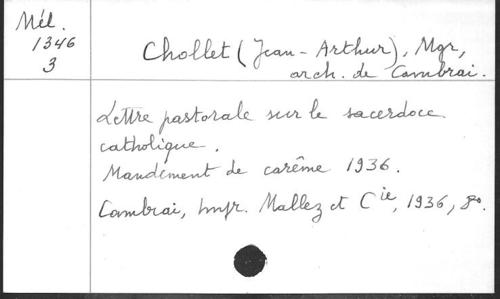 Mél.
1346
3
Chollet (Jean-Arthur), Mgr,
arch. de Cambrai.
Lettre pastorale sur le sacerdoce
catholique.
Mandement de carême 1936.
Cambrai, Impr. Mallez et Cie, 1936, 8o.